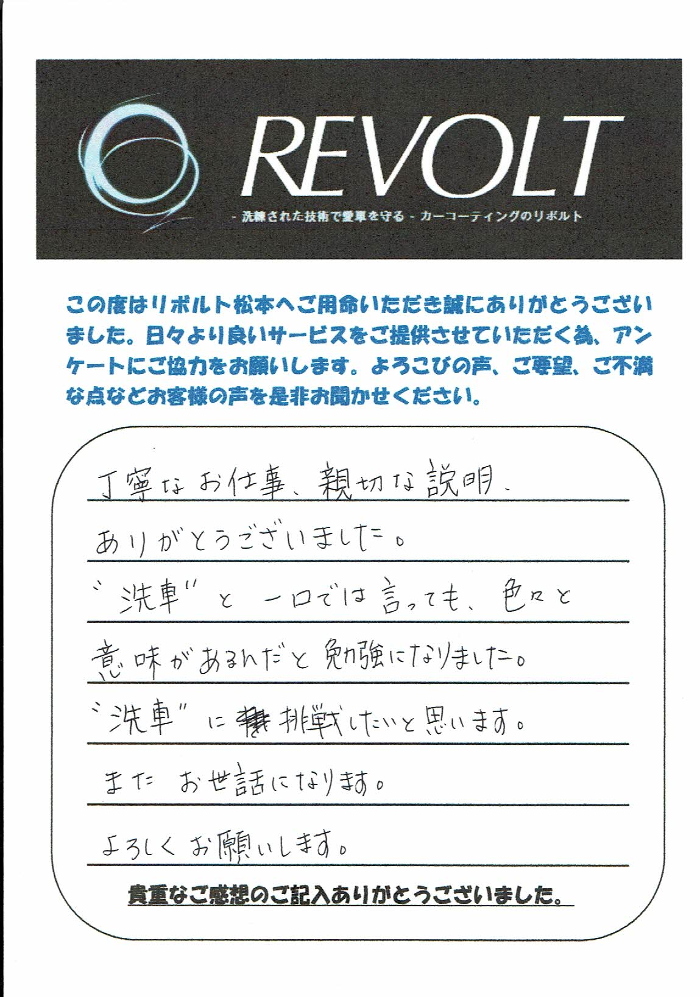 REVOLT
- 洗練された技術で愛車を守る - カーコーティングのリボルト
この度はリボルト松本へご用命いただき誠にありがとうござい
ました。日々より良いサービスをご提供させていただく為、アン
ケートにご協力をお願いします。よろこびの声、ご要望、ご不満
な点などお客様の声を是非お聞かせください。
丁寧なお仕事、親切な説明、
ありがとうございました。
〝洗車〟と一口では言っても、色々と
意味があるんだと勉強になりました。
〝洗車〟に挑戦したいと思います。
またお世話になります。
よろしくお願いします。
貴重なご感想のご記入ありがとうございました。